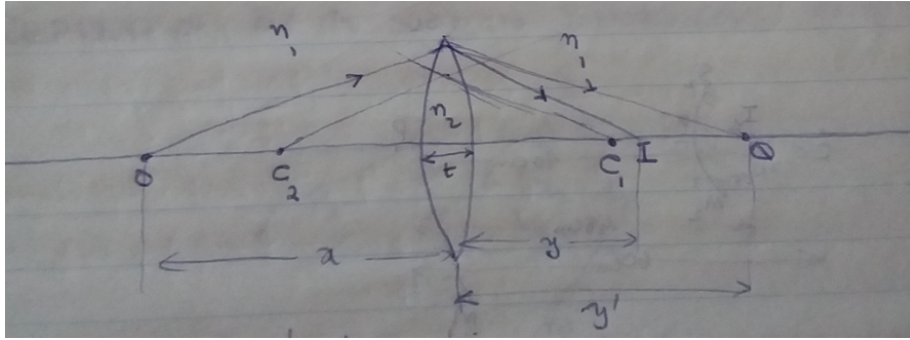 n₁ n₁
n₂
t
O C₂ C₁ I O
x y
y'